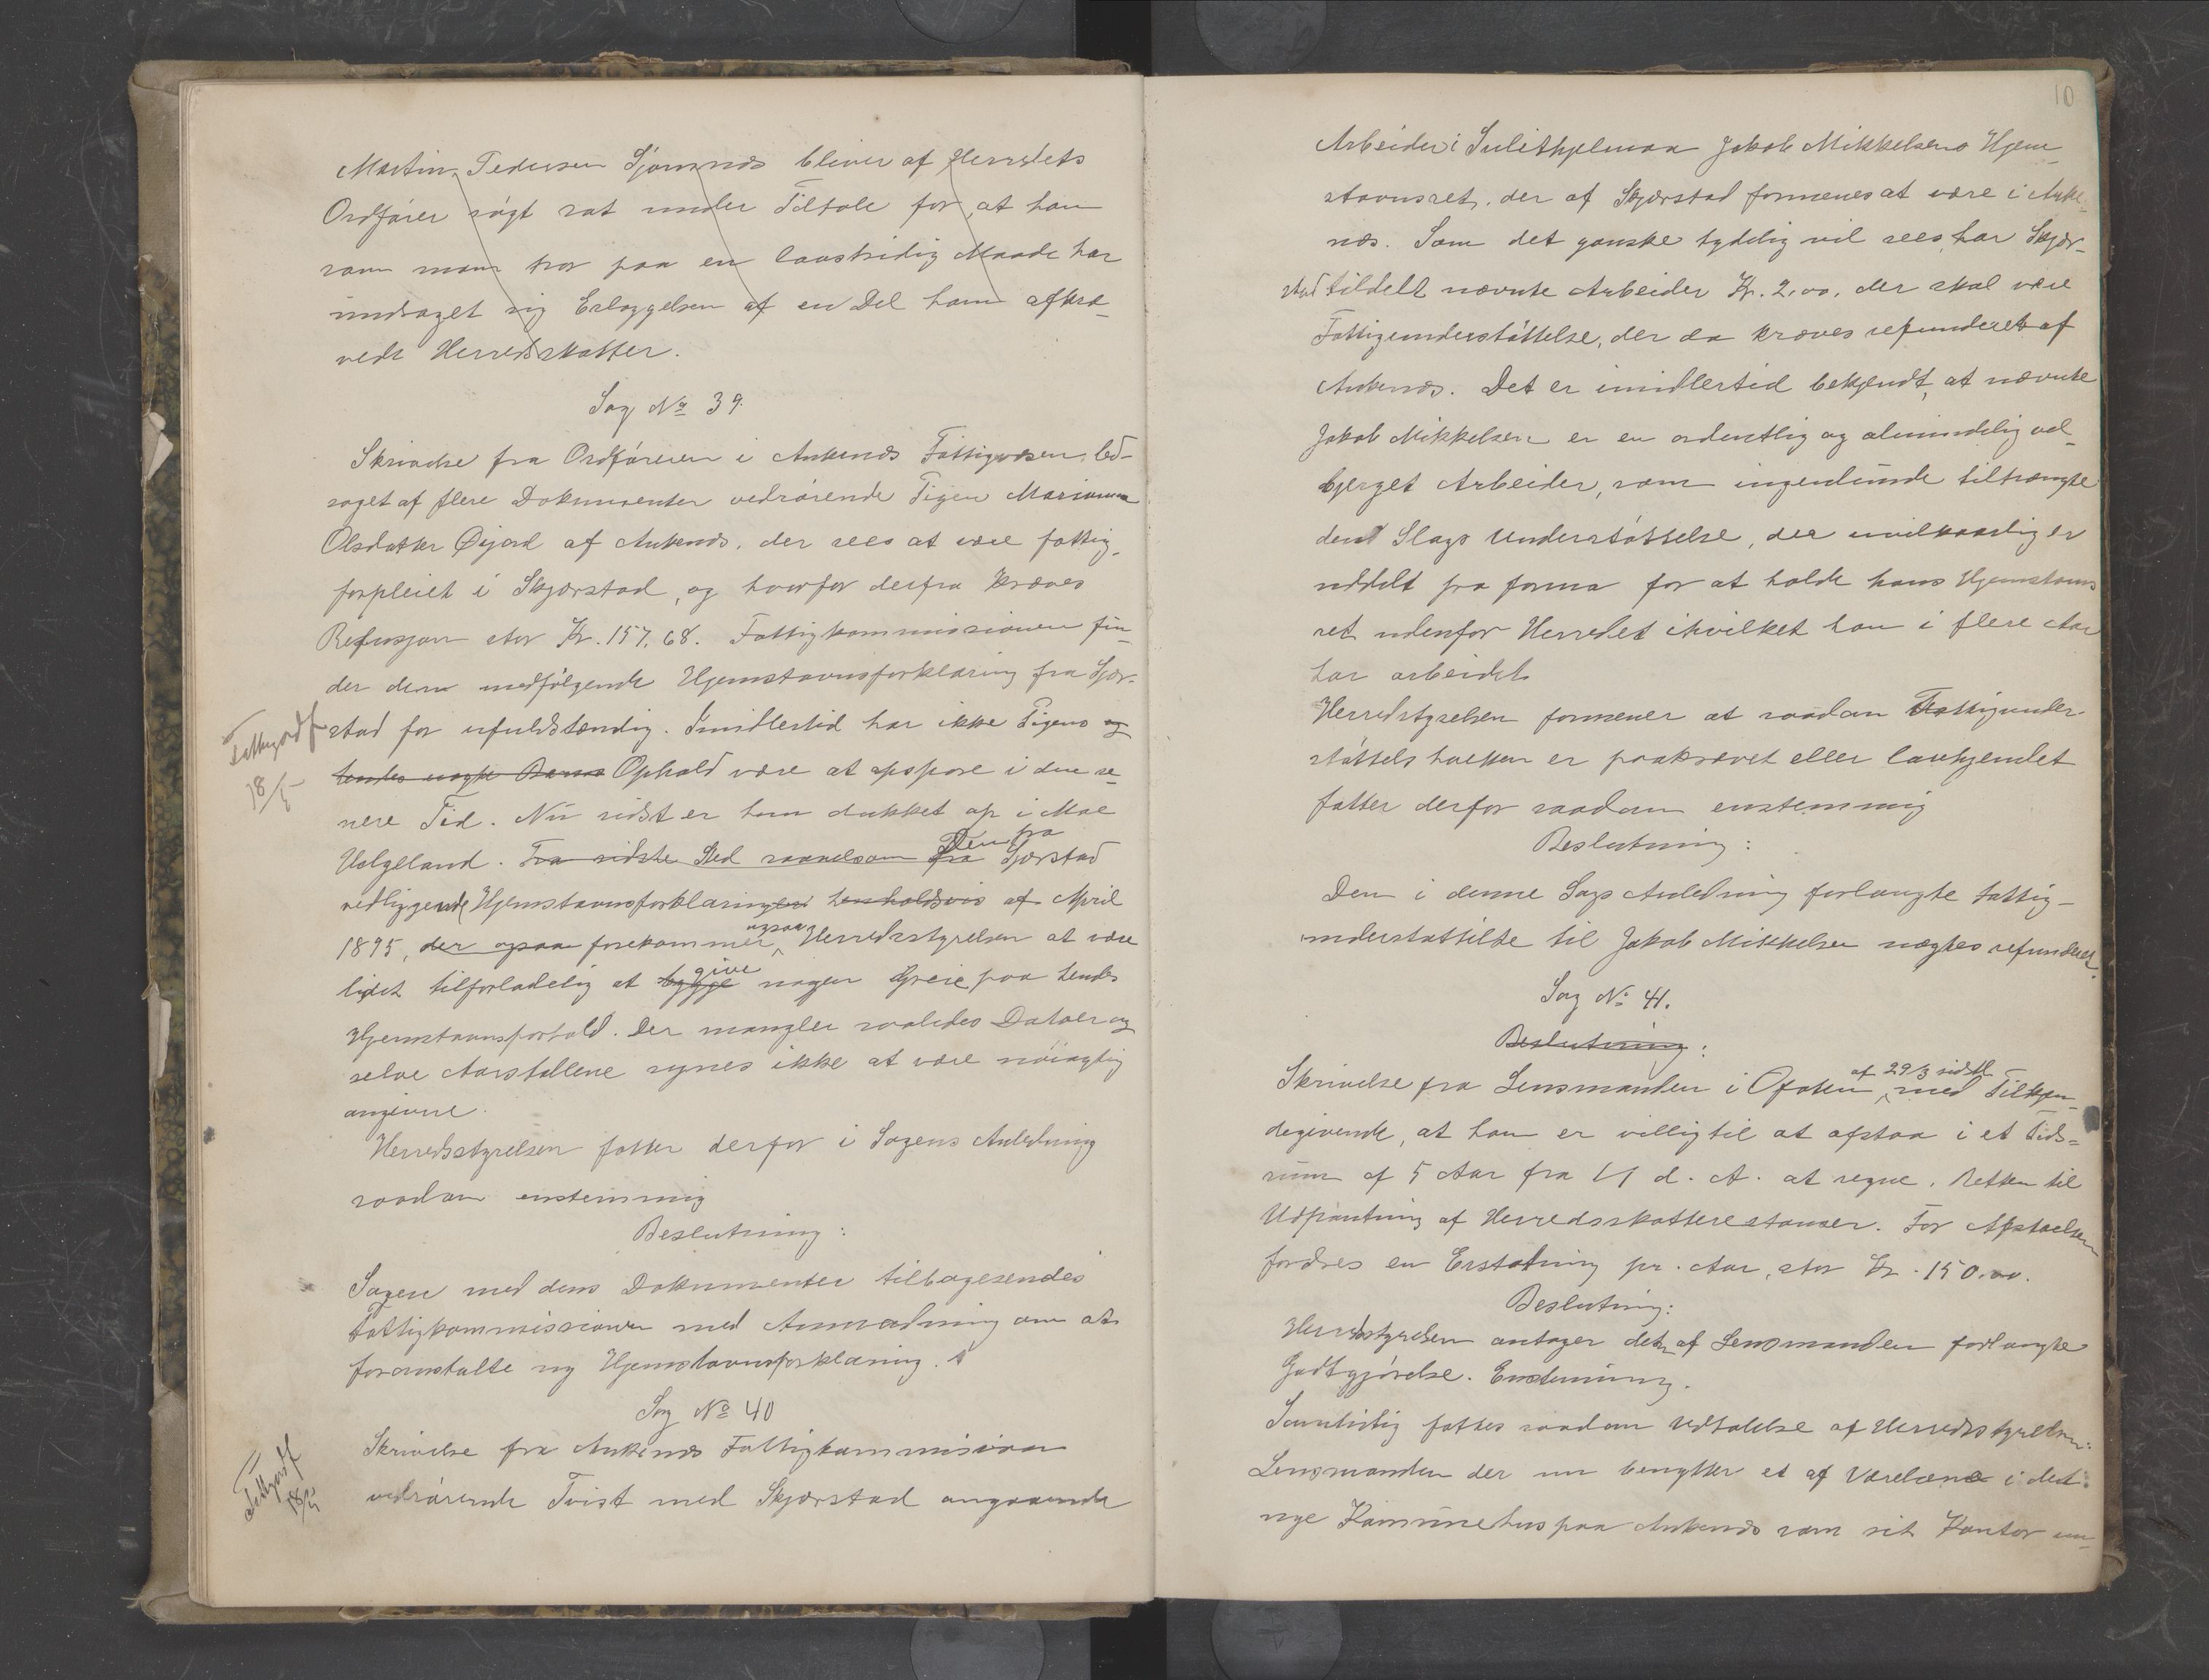 Martin Pedersen Sjømnæs bliver af Herredets
Ordfører søgt sat under Tiltale for, at han
som man tror paa en lovstridig Maade har
unddraget sig Erlæggelsen af en Del ham afkræ-
vede Herredsskatter.
Sag No 39.
Skrivelse fra Ordføreren i Ankenæs Fattigvæsen, led-
saget af flere Dokumenter vedrørende Pigen Marianna
Olsdatter Øijord af Ankenæs, der sees at være fattig-
forpleiet i Skjærstad, og hvorfor derfra kræves
Refusjon stor Kr. 157,68. Fattigkommissionen fin-
der den medfølgende Hjemstavnsforklaring fra Skjær-
stad for ufuldstændig. Imidlertid har ikke Pigens og
hendes uægte Barns Ophold være at opspore i den se-
nere Tid. Nu sidst er hun dukket op i Moe
Den fra
Helgeland. Fra sidste Sted saavelsom fra Skjærstad
vedliggende Hjemstavnsforklaringer henholdsvis af April
ogsaa
1895, der ogsaa forekommer Herredsstyrelsen at være
give
lidet tilforladelig at bygge nogen Greie paa hendes
Hjemstavnsforhold. Der mangler saaledes Datoer og
selve Aarstallene synes ikke at være nøiagtig
angivne.
Herredsstyrelsen fatter derfor i Sagens Anledning
saadan enstemmig
Beslutning:
Sagen med dens Dokumenter tilbagesendes
Fattigkommissionen med Anmodning om at
foranstalte ny Hjemstavnsforklaring.
Sag No 40
Skrivelse fra Ankenæs Fattigkommission
vedrørende Tvist med Skjærstad angaaende
Fattigordf
18/5
Fattigordf
18/5
10
Arbeider i Sulithjelmaa Jakob Mikkelsens Hjem-
stavnsret, der af Skjærstad formenes at være i Anke-
næs. Som det ganske tydelig vil sees, har Skjær-
stad tildelt nævnte Arbeider Kr. 2,00, der skal være
Fattigunderstøttelse, der da kræves refunderet af
Ankenæs. Det er imidlertid bekjendt, at nævnte
Jakob Mikkelsen er en ordentlig og almindelig vel-
bjerget Arbeider, som ingenlunde tiltrængte
den Slags Understøttelse, der uvilkaarlig er
uddelt pro forma for at holde hans Hjemstavns
ret udenfor Herredet ihvilket han i flere Aar
har arbeidet.
Herredstyrelsen formener at saadan Fattigunder-
støttels hverken er paakrævet eller lavhjemlet
fatter derfor saadan enstemmig
Beslutning:
Den i denne Sags Anledning forlangte Fattig-
understøttelse til Jakob Mikkelsen nægtes refunderet.
Sag No 41.
Beslutning:
af 29/3 sidstl
Skrivelse fra Lensmanden i Ofoten med Tilkjen-
degivende, at han er villig til at afstaa i et Tids-
rum af 5 Aar fra 1/1 d. A. at regne, Retten til
Udpantning af Herredsskatterestanser. For Afstaaelsen
fordres en Erstatning pr. Aar, stor Kr. 150.00.
Beslutning:
Herredsstyrelsen antager den af Lensmanden forlangte
Godtgjørelse. Enstemmig.
Samtidig fattes saadan Udtalelse af Herredsstyrelsen:
Lensmanden der nu benytter et af Værelserne i det
nye Kommunehus paa Ankenæs som sit Kontor